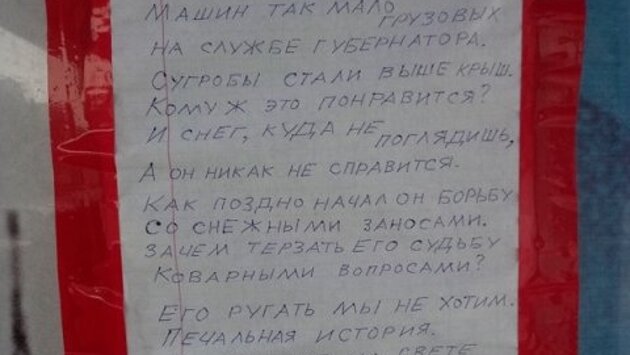 Машин так мало грузовых
на службе губернатора.
Сугробы стали выше крыш.
Кому ж это понравится?
И снег, куда не поглядишь,
А он никак не справится.
Как поздно начал он борьбу
со снежными заносами.
Зачем терзать его судьбу
Коварными вопросами?
Его ругать мы не хотим.
Печальная история.
свете